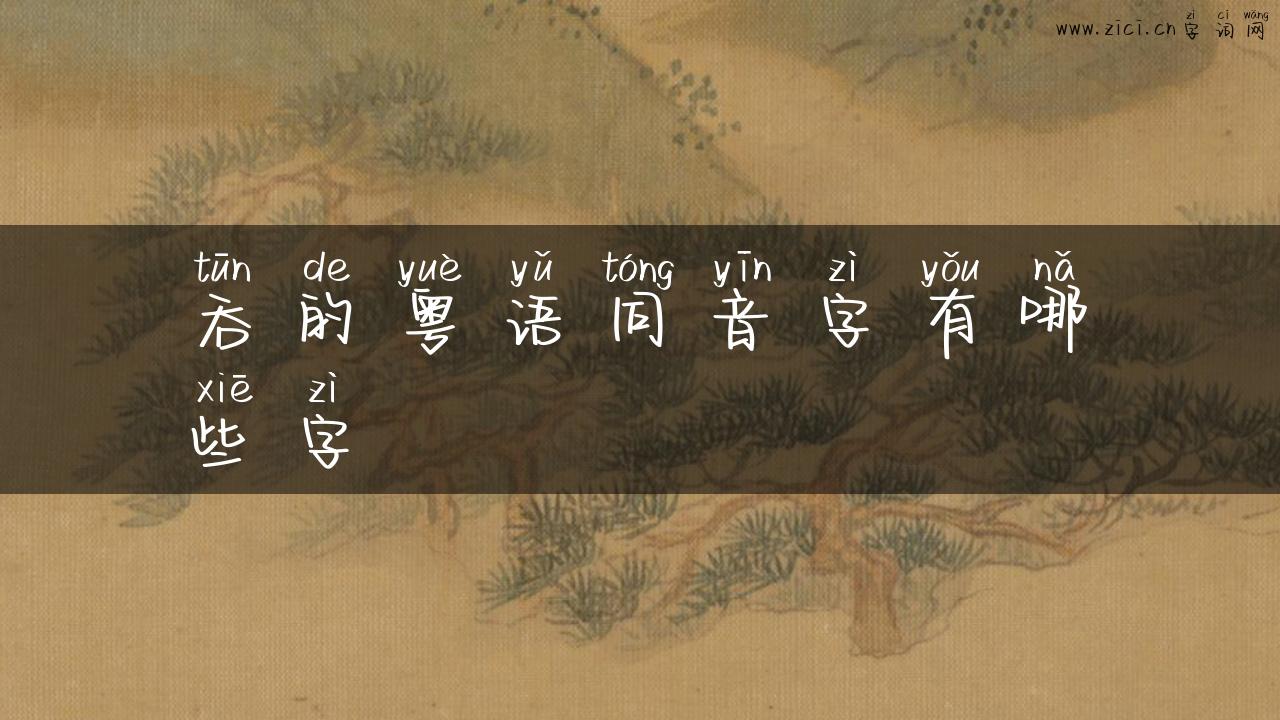 zì cí wǎng
www.zici.cn 字 词 网
tūn de yuè yǔ tóng yīn zì yǒu nǎ
吞 的 粤 语 同 音 字 有 哪
xiē zì
些 字